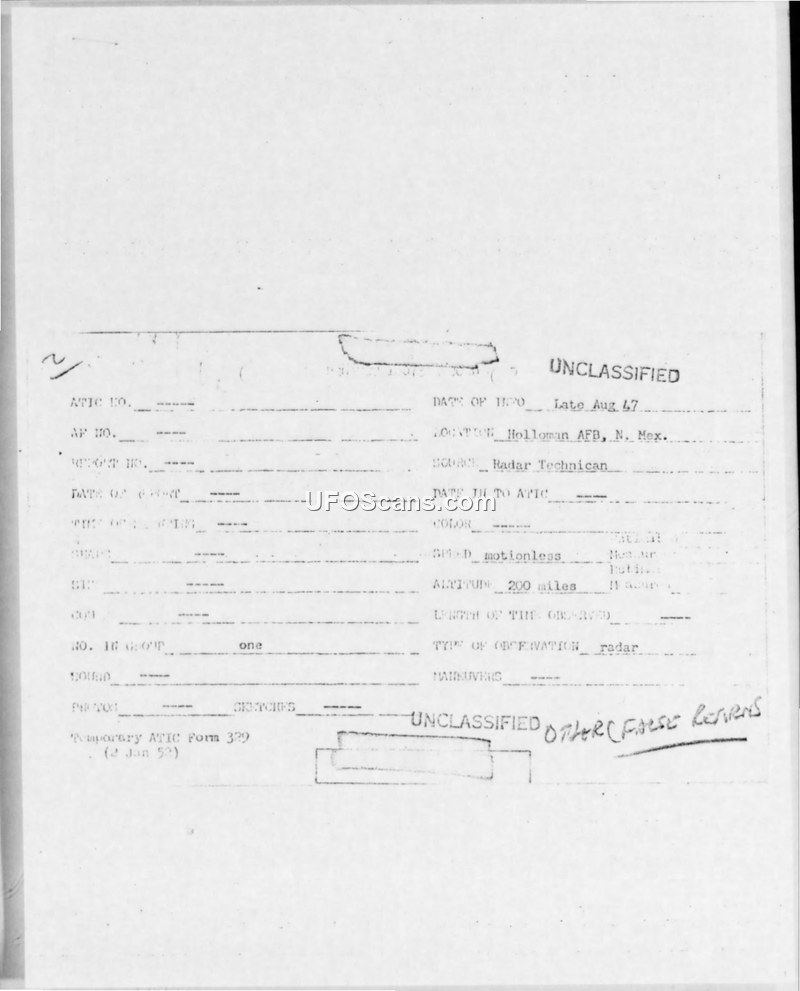 UNCLASSIFIED
ATIC NO. ----- DATE OF INFO Late Aug 47
AF NO. ---- LOCATION Holloman AFB, N. Mex.
REPORT NO. ---- SOURCE Radar Technican
DATE OF REPORT ---- DATE IN TO ATIC ----
UFOScans.com
TIME OF SIGHTING ---- COLOR -----
SHAPE ---- SPEED motionless
SIZE ----- ALTITUDE 200 miles
COURSE ---- LENGTH OF TIME OBSERVED ----
NO. IN GROUP one TYPE OF OBSERVATION radar
SOUND ---- MANEUVERS ----
PHOTOS ---- SKETCHES -----
UNCLASSIFIED OTHER (FALSE RETURNS
Temporary ATIC Form 329
(2 Jan 52)